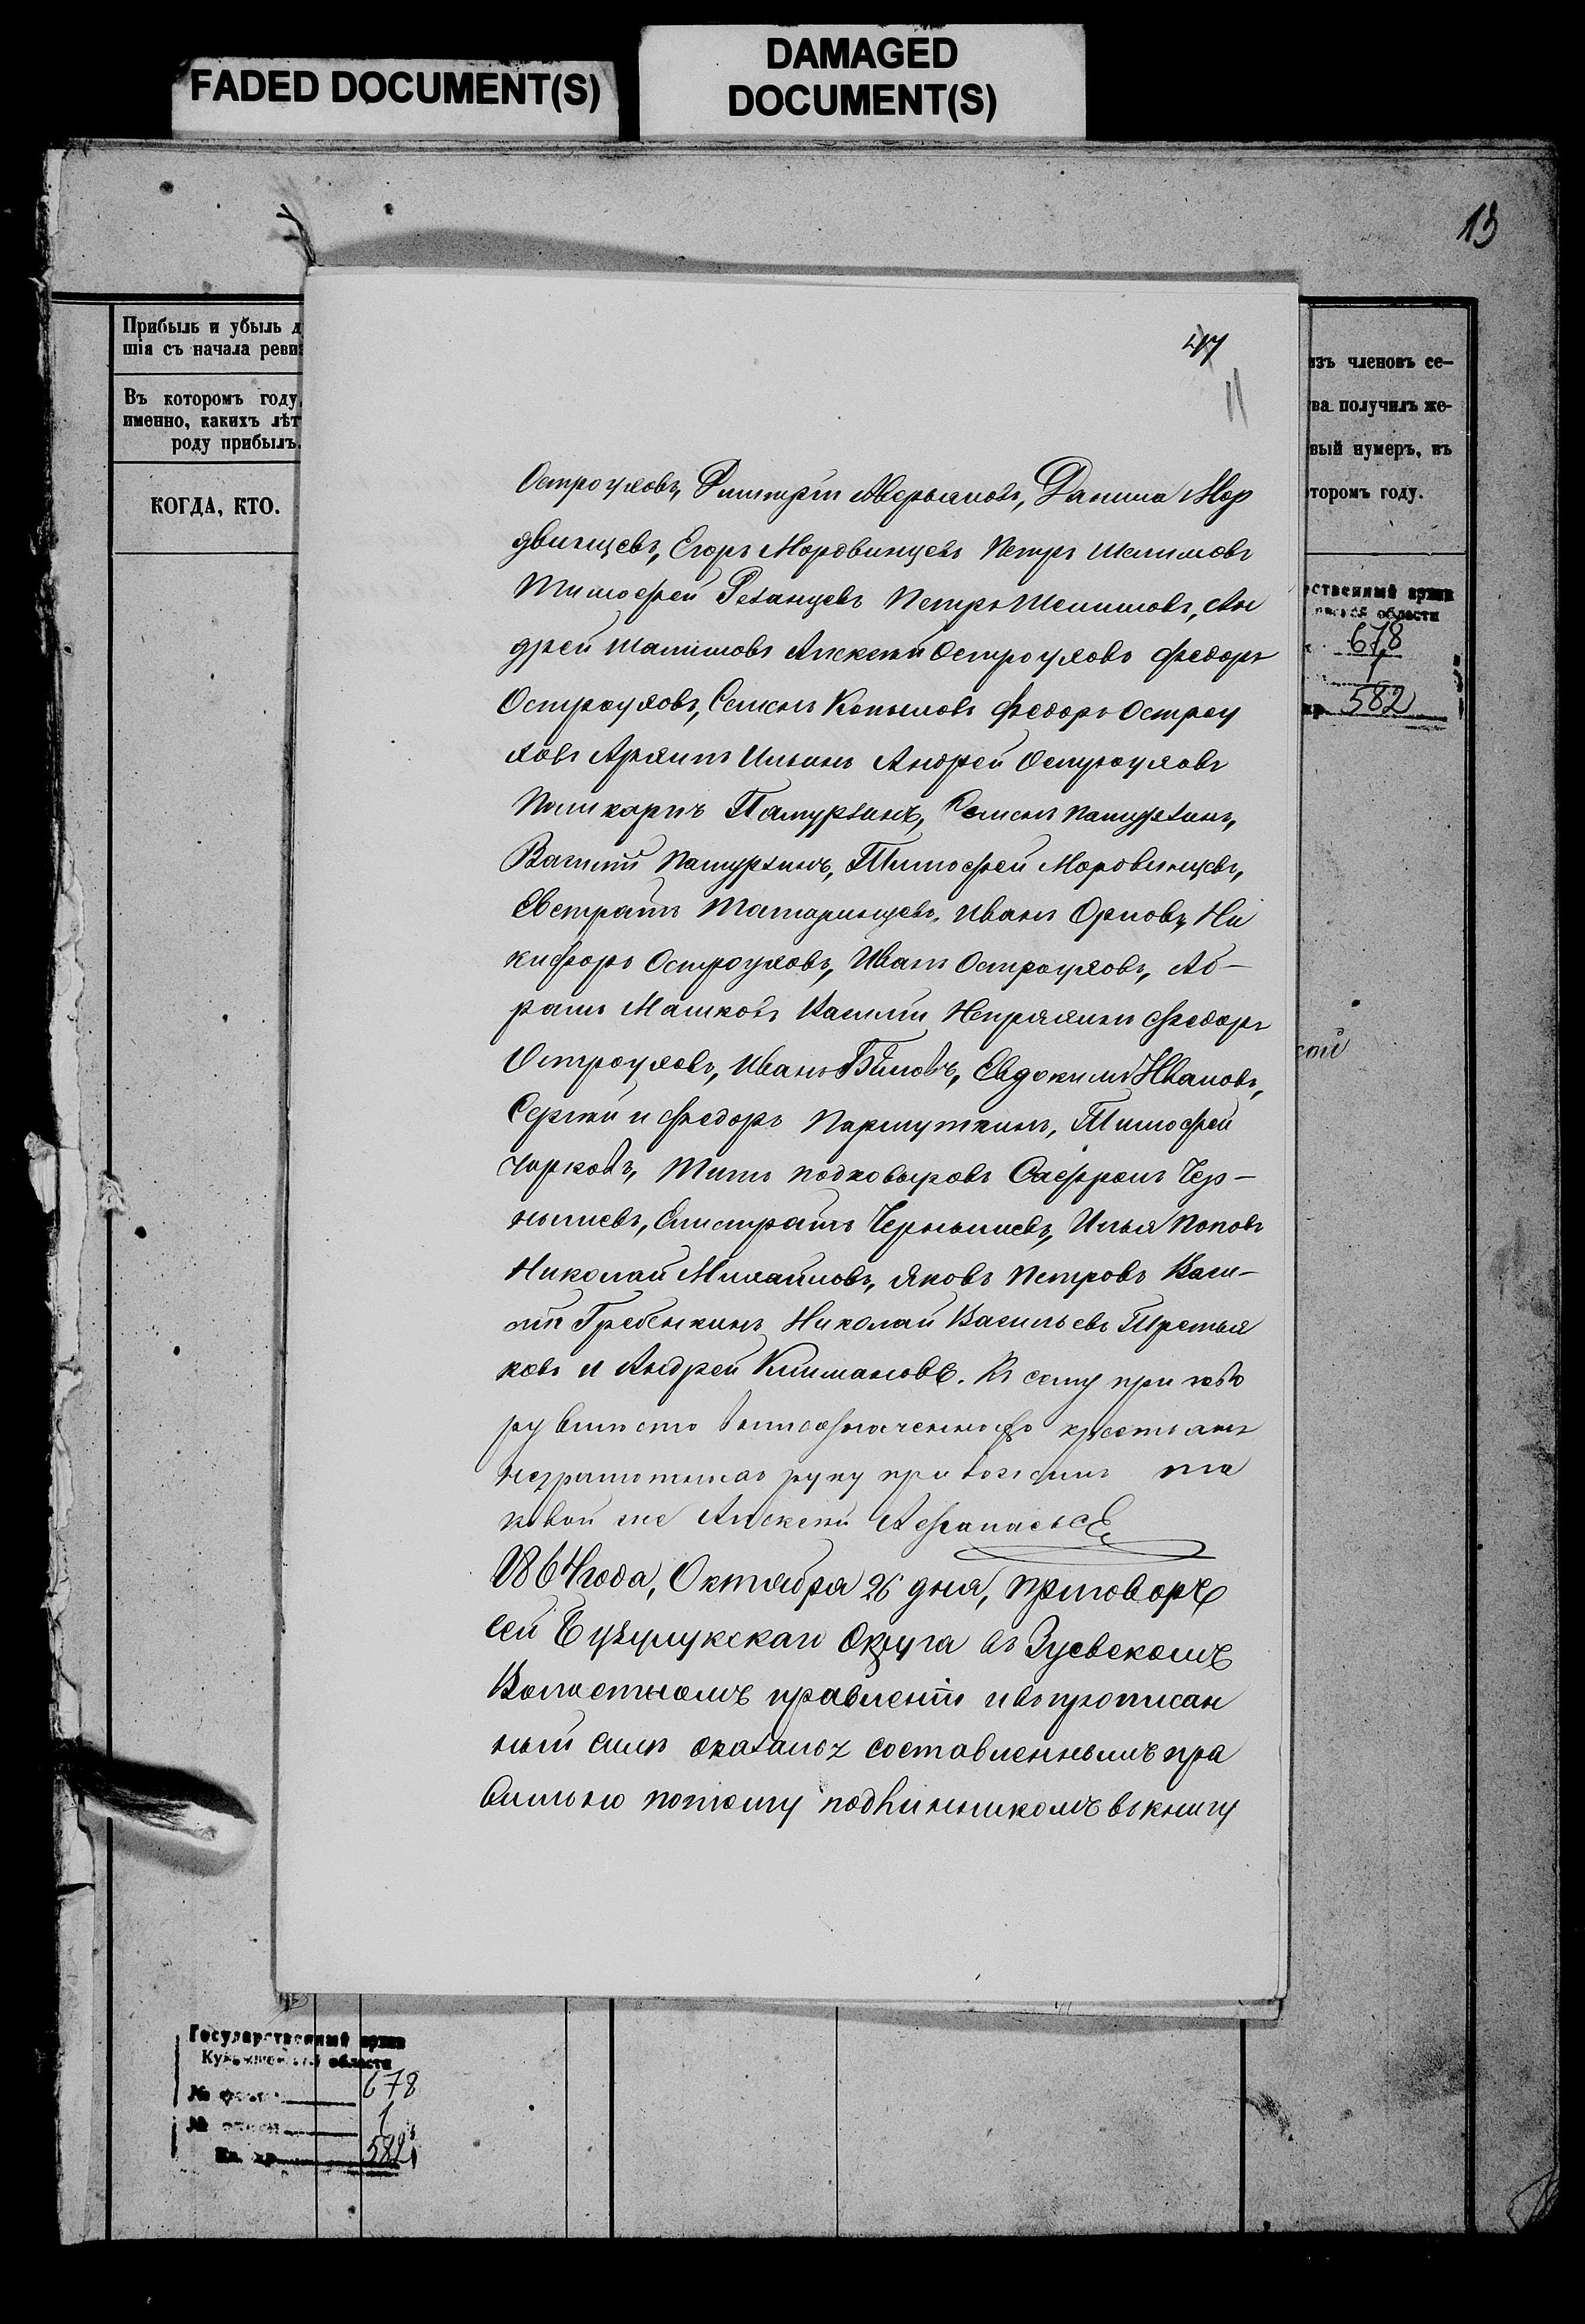 FADED DOCUMENT(S)
DAMAGED
DOCUMENT(S)
13
Прибыль и убыль д
шія съ начала реви
Въ которомъ году
именно, какихъ лѣт
роду прибылъ.
КОГДА, КТО.
изъ членовъ се-
ва получилъ же-
вый нумеръ, въ
томъ году.
678
1
582
11
Остроуховъ, Дмитрій Аверьановъ, Данила Мор
двинцевъ, Егоръ Мордвинцевъ Петръ Шалимовъ
Тимофей Резанцевъ Петръ Шелимовъ, Ан
дрей Шалимовъ Алексѣй Остроуховъ Федоръ
Остроуховъ, Семенъ Копыловъ Федоръ Остроу
ховъ Архипъ Ильинъ Андрей Остроуховъ
Поликарпъ Патурзинъ, Семенъ Патурзинъ,
Василій Патурзинъ, Тимофей Мордвинцевъ,
Евстратъ Татаринцевъ, Иванъ Орловъ, Ни
кифоръ Остроуховъ, Иванъ Остроуховъ, Аб-
рамъ Машковъ Василій Непряхинъ Федоръ
Остроуховъ, Иванъ Бѣловъ, Евдокимъ Ивановъ,
Сергѣй и Федоръ Паршуткинъ, Тимофей
Чирковъ, Титъ Подковыровъ Сафронъ Чер-
нышевъ, Елистратъ Чернышевъ, Илья Поповъ
Николай Михайловъ, Яковъ Петровъ Васи-
лій Гребенкинъ Николай Васильевъ Третья
ковъ и Андрей Климановъ. Къ сему приговo
ру вместо вышеозначенныхъ крестьянъ
неграмотныхъ руку приложилъ та
ковой же Алексѣй Афанасьевъ
1864 года, Октября 26 дня, приговоръ
сей Бузулукскаго Округа въ Зуевскомъ
Волостномъ правленіи и въ прописан
ный силѣ оказалсz составленнымъ пра
вильно потому подлинникомъ въ книгу
Государственный архив
области
678
1
582